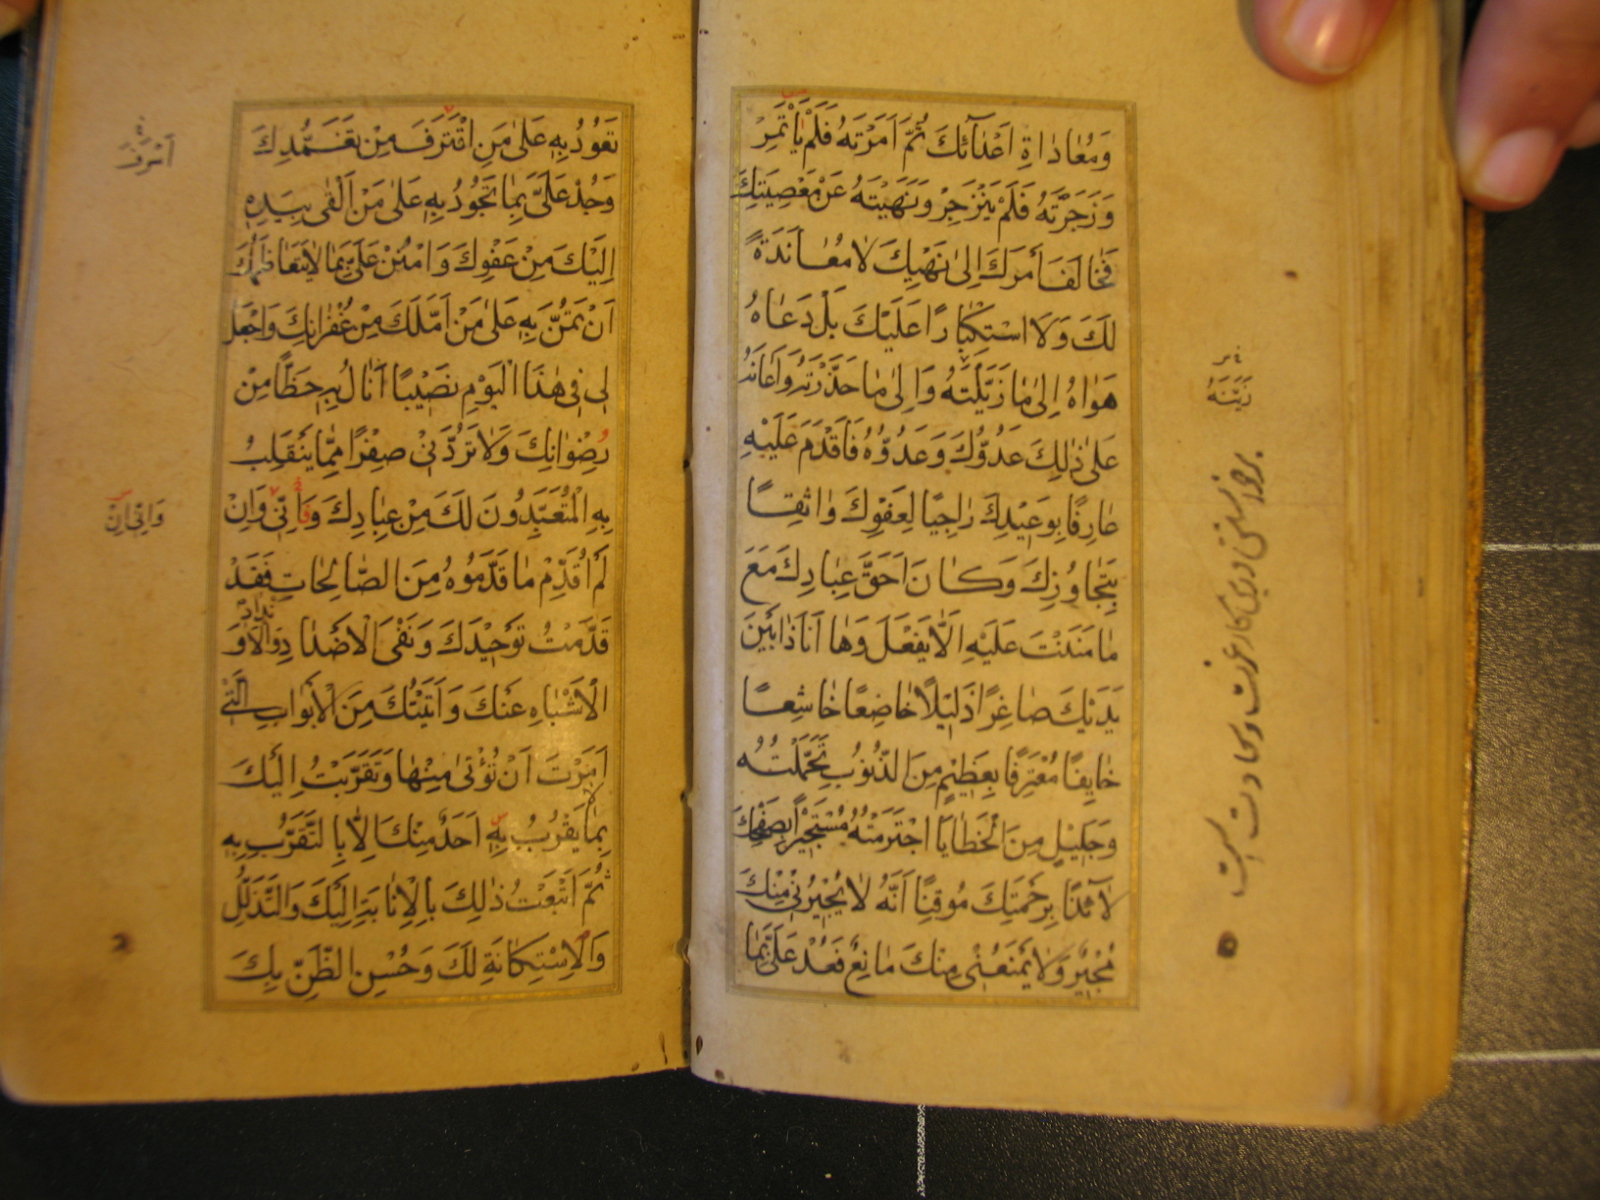 وَمُعَادَاةِ اَعْدَآئِكَ ثُمَّ اَمَرْتَهُ فَلَمْ يَأْتَمِرْ
وَزَجَرْتَهُ فَلَمْ يَنْزَجِرْ وَنَهَيْتَهُ عَنْ مَعْصِيَتِكَ
فَخَالَفَ أَمْرَكَ اِلىٰ نَهْيِكَ لَا مُعَانَدَةً
لَكَ وَلَا اسْتِكْبَارًا عَلَيْكَ بَلْ دَعَاهُ
هَوَاهُ اِلىٰ مَا زَيَّلْتَهُ وَاِلىٰ مَا حَذَّرْتَهُ وَاَعَانَهُ
عَلىٰ ذٰلِكَ عَدُوُّكَ وَعَدُوُّهُ فَاَقْدَمَ عَلَيْهِ
عَارِفًا بِوَعِيْدِكَ رَاجِيًا لِعَفْوِكَ وَاثِقًا
بِتَجَاوُزِكَ وَكَانَ اَحَقَّ عِبَادِكَ مَعَ
مَا مَنَنْتَ عَلَيْهِ اَلَّا يَفْعَلَ وَهَا اَنَا ذَا بَيْنَ
يَدَيْكَ صَاغِرًا ذَلِيْلًا خَاضِعًا خَاشِعًا
خَايِفًا مُعْتَرِفًا بِعَظِيْمٍ مِنَ الذُّنُوْبِ تَحَمَّلْتُهُ
وَجَلِيْلٍ مِنَ الْخَطَايَا اجْتَرَمْتُهُ مُسْتَجِيْرًا بِصَفْحِكَ
لَائِذًا بِرَحْمَتِكَ مُوقِنًا اَنَّهُ لَا يُجِيْرُنِيْ مِنْكَ
مُجِيْرٌ وَلَا يَمْنَعُنِيْ مِنْكَ مَانِعٌ فَعُدْ عَلَيَّ بِمَا
تَعُوْدُ بِهِ عَلىٰ مَنِ اقْتَرَفَ مِنْ تَغَمُّدِكَ
وَجُدْ عَلَيَّ بِمَا تَجُوْدُ بِهِ عَلىٰ مَنْ اَلْقىٰ بِيَدِهِ
اِلَيْكَ مِنْ عَفْوِكَ وَامْنُنْ عَلَيَّ بِمَا لَا يَتَعَاظَمُكَ
اَنْ تَمُنَّ بِهِ عَلىٰ مَنْ اَمَّلَكَ مِنْ غُفْرَانِكَ وَاجْعَلْ
لِيْ فِيْ هٰذَا الْيَوْمِ نَصِيْبًا اَنَالُ بِهِ حَظًّا مِنْ
رِضْوَانِكَ وَلَا تَرُدَّنِيْ صِفْرًا مِمَّا يَنْقَلِبُ
بِهِ الْمُتَعَبِّدُونَ لَكَ مِنْ عِبَادِكَ وَاِنِّيْ وَاِنْ
لَمْ اُقَدِّمْ مَا قَدَّمُوْهُ مِنَ الصَّالِحَاتِ فَقَدْ
قَدَّمْتُ تَوْحِيْدَكَ وَنَفْيَ الْاَضْدَادِ وَالْاَنْدَادِ وَ
الْاَشْبَاهِ عَنْكَ وَاَتَيْتُكَ مِنَ الْاَبْوَابِ الَّتِيْ
اَمَرْتَ اَنْ تُؤْتىٰ مِنْهَا وَتَقَرَّبْتُ اِلَيْكَ
بِمَا لَا يَقْرُبُ بِهِ اَحَدٌ مِنْكَ اِلَّا بِالتَّقَرُّبِ بِهِ
ثُمَّ اَتْبَعْتُ ذٰلِكَ بِالْاِنَابَةِ اِلَيْكَ وَالتَّذَلُّلِ
وَالْاِسْتِكَانَةِ لَكَ وَحُسْنِ الظَّنِّ بِكَ